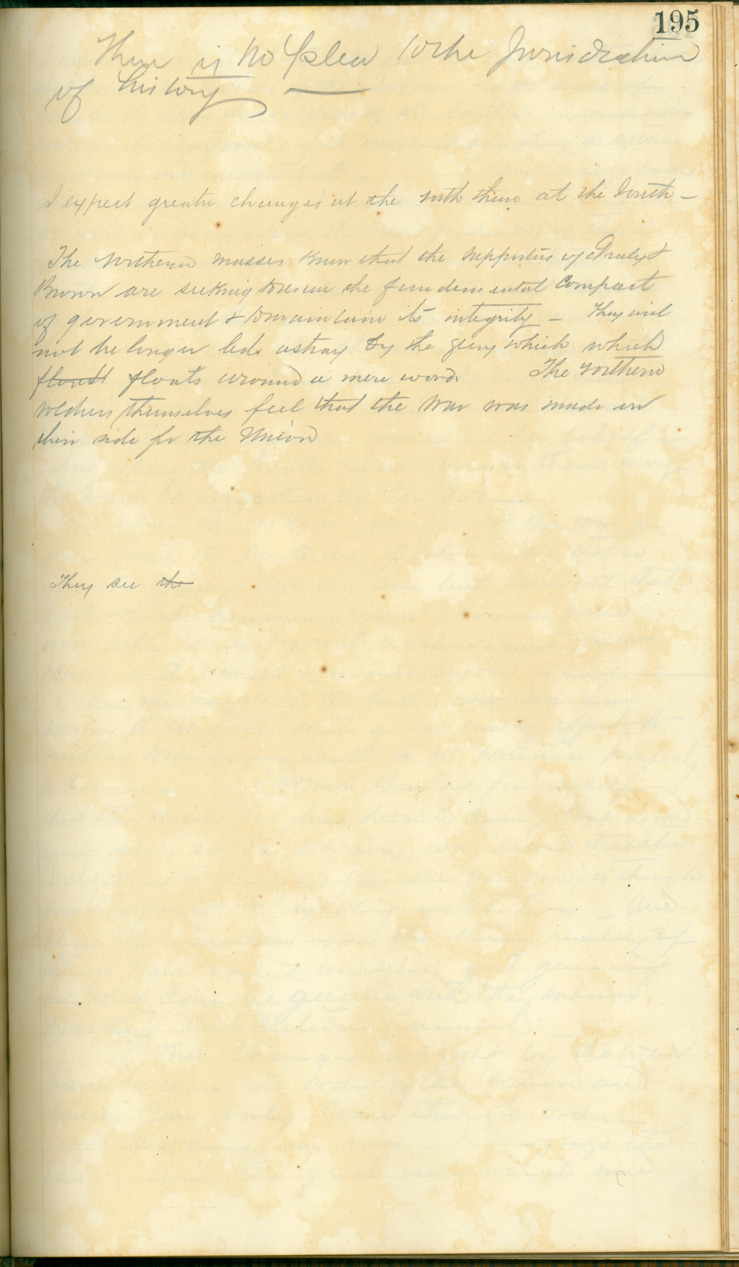 195
There is no Plea to the Jurisdiction
of history
I expect greater changes at the North than at the South —
The Northern masses know that the supporters of Greeley &
Brown are seeking to rescue the fundamental Compact
of government & to maintain its integrity — They will
not be longer led astray by the glory which which
floats around a mere word The Northern
soldiers themselves feel that the War was made on
their side for the Union
They see the